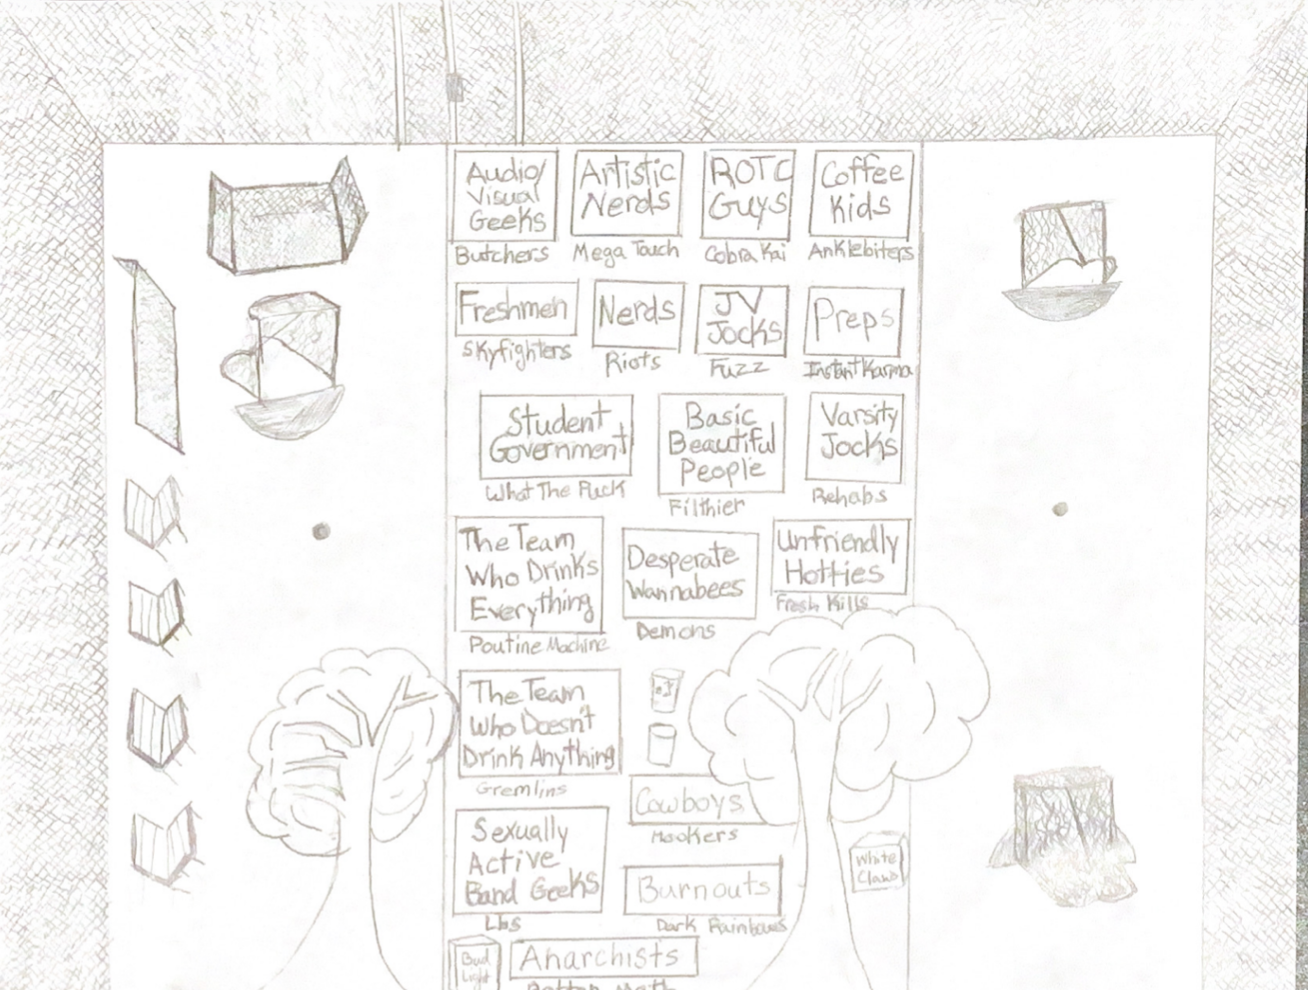 Audio/
Visual
Geeks
Butchers
Artistic
Nerds
Mega Touch
ROTC
Guys
Cobra Kai
Coffee
Kids
Anklebiters
Freshmen
Skyfighters
Nerds
Riots
JV
Jocks
Fuzz
Preps
Instant Karma
Student
Government
What The Puck
Basic
Beautiful
People
Filthier
Varsity
Jocks
Rehabs
The Team
Who Drinks
Everything
Poutine Machine
Desperate
Wannabees
Demons
Unfriendly
Hotties
Fresh Kills
The Team
Who Doesn't
Drink Anything
Gremlins
Cowboys
Mookers
Sexually
Active
Band Geeks
Lbs
Burnouts
Dark Rainbows
White
Claws
Bud
Light
Anarchists